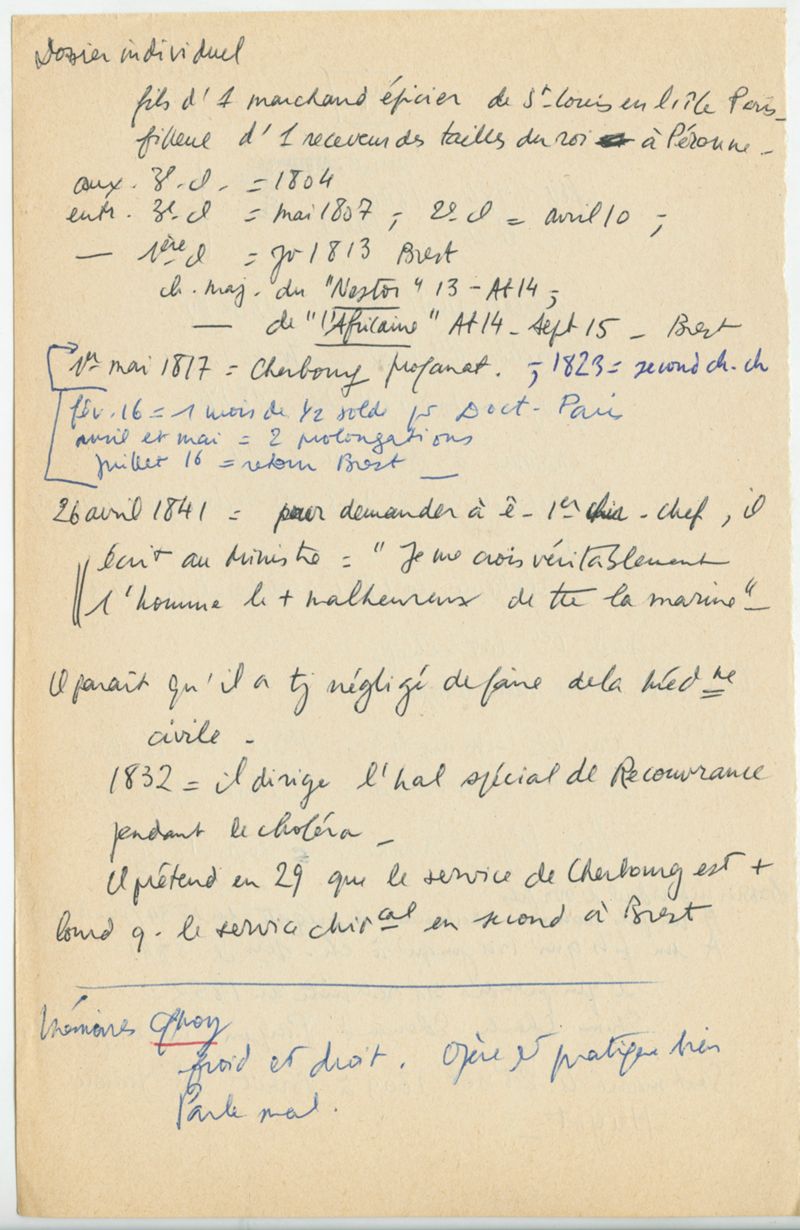 Dossier individuel
fils d'1 marchand épicier de St-Louis en l'île Paris_
filleul d'1 receveur des tailles du roi à Péronne _
aux. 3e cl - = 1804
entr. 3e cl = mai 1807 ; 2e cl = avril 10 ;
— 1ère cl = jr 1813 Brest
ch. maj. du "Nestor" 13 - At 14 ;
— de "l'Africaine" At 14 - Sept 15 _ Brest
1er mai 1817 = Cherbourg profanat. ; 1823 = second ch. ch
fév. 16 = 1 mois de 1/2 solde pr Doct - Paris
avril et mai = 2 prolongations
juillet 16 = retour Brest _
26 avril 1841 = pour demander à ê - 1er chir - chef, il
écrit au Ministre = "Je me crois véritablement
l'homme le + malheureux de tte la marine" _
Il paraît qu'il a tj négligé de faire de la Médne
civile _
1832 = il dirige l'hal spécial de Recouvrance
pendant le choléra _
Il prétend en 29 que le service de Cherbourg est +
lourd q. le service chircal en second à Brest
Mémoires Quoy
froid et droit. Opère et pratique bien
Parle mal.